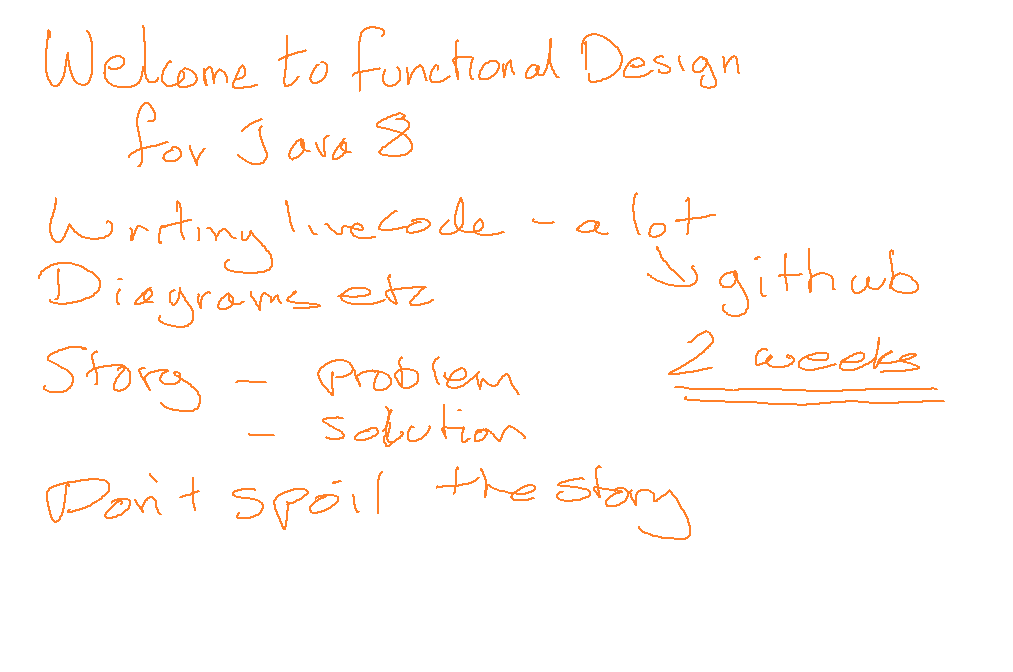 Welcome to functional Design
for Java 8
Writing livecode - a lot
↳ github
Diagrams etc
2 weeks
Story - Problem
- Solution
Don't spoil the story